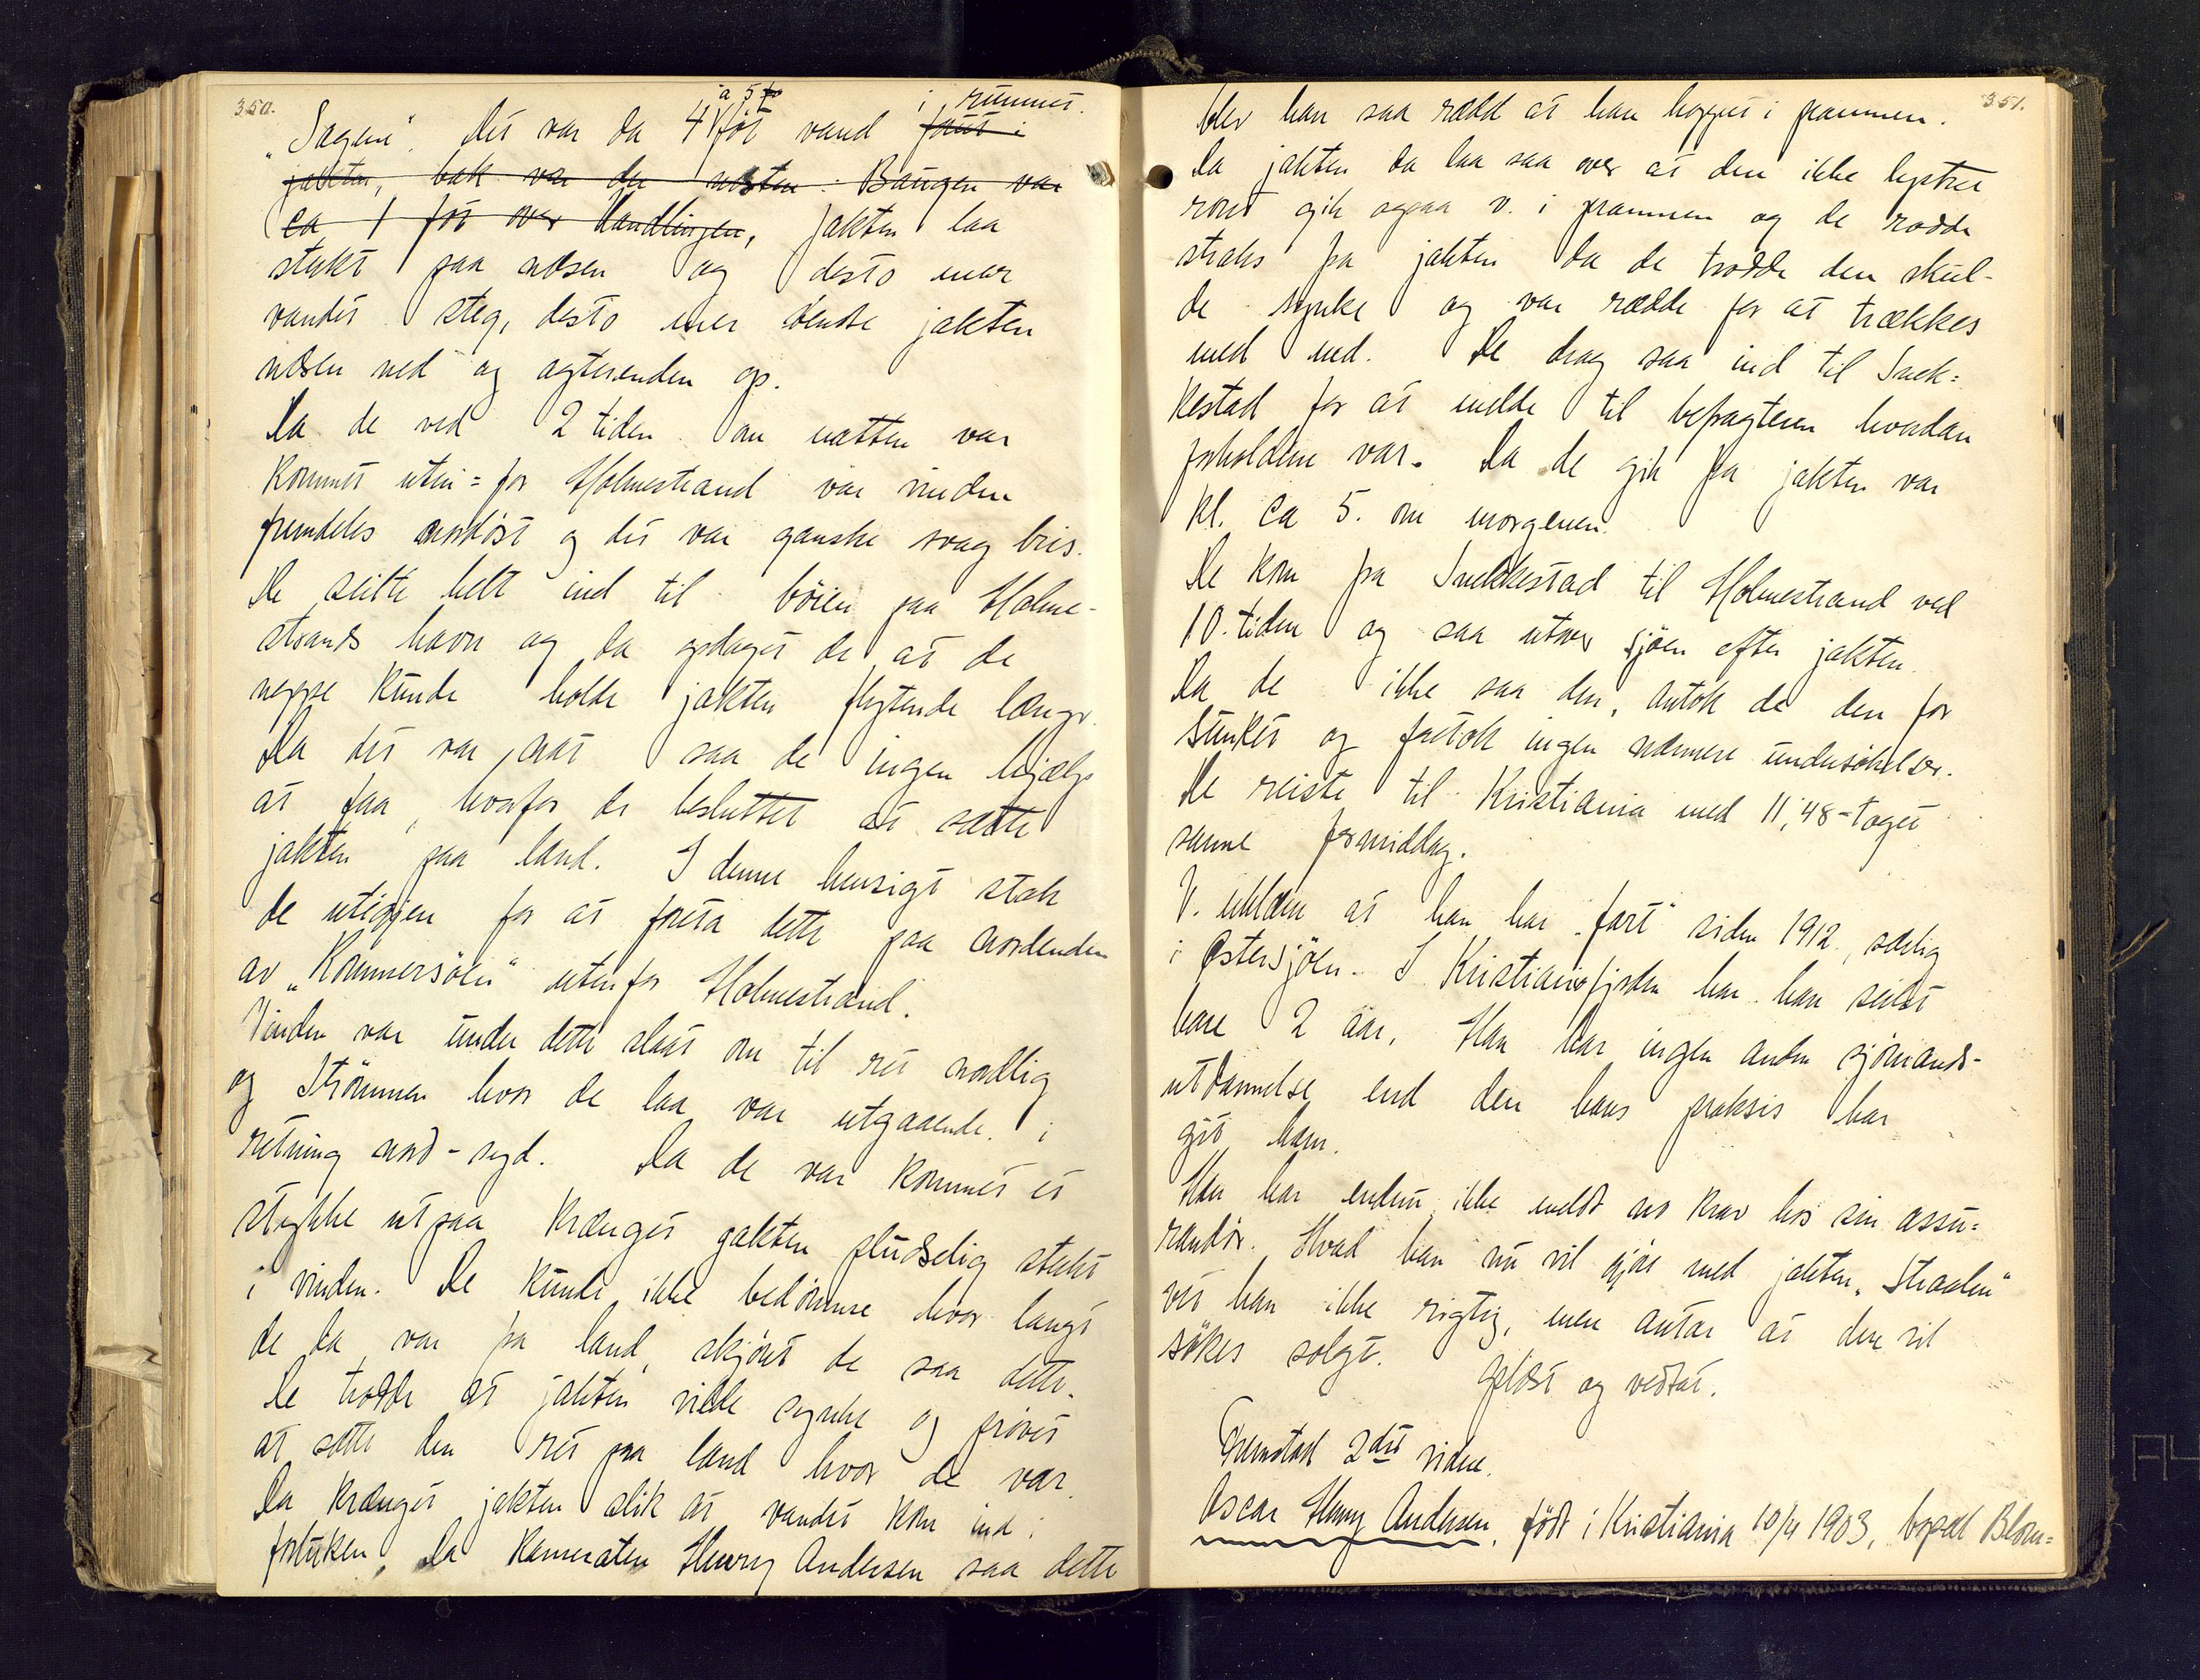 350.
„Sagene“. Det var da 4 à 5 fot vand i rummet.
~~fast i~~
~~jakten, bak var der næsten. Baugen var~~
~~ca 1 fot over Vandlinjen~~, jakten laa
stukt paa næsen og desto mer
vandet steg, desto mer dendte jakten
næsen ned og agterenden op.
Da de ved 2 tiden om natten var
kommet uten=for Holmestrand var vinden
fremdeles nordöst og det var ganske svag bris.
De seilte helt ind til böien paa Holme-
strands havn og da opdaget de at de
neppe kunde holde jakten flytende længr.
Da det var nat saa de ingen hjælp
at faa, hvorfor de besluttet at sætte
jakten paa land. I denne hensigt stak
de utigjen for at foreta dette paa nordenden
av „Kommersöen“ utenfor Holmestrand.
Vinden var under dette slaat om til ret nordlig
og Strömmen hvor de laa var utgaaende i
retning nord-syd. Da de var kommet et
stykke utpaa krænget jakten pludselig sterkt
i vinden. De kunde ikke bedömme hvor langt
de da var fra land, skjönt de saa dette.
De trodde at jakten vilde synke og prövet
at sætte den ret paa land hvor de var.
Da krænget jakten slik at vandet kom ind i
forluken. Da Kameraten Henry Andersen saa dette
351.
blev han saa rædd at han hoppet i prammen.
Da jakten da laa saa over at den ikke lystret
roret gik ogsaa v. i prammen og de rodde
straks fra jakten da de trodde den skul-
de synke og var rædde for at trækkes
med ned. De drog saa ind til Snek=
kestad for at melde til befragteren hvordan
forholdene var. Da de gik fra jakten var
kl. ca 5. om morgenen.
De kom fra Snekkestad til Holmestrand ved
10.tiden og saa utover sjöen efter jakten.
Da de ikke saa den, antok de den for
sunket og foretok ingen nærmere undersökelser.
De reiste til Kristiania med 11,48-toget
samme formiddag.
V. uklarer at han har „fart“ siden 1912, særlig
i Østersjöen. I Kristianiafjorden har han seilet
bare 2 aar. Han har ingen anden sjömands-
utdannelse end den hans praksis har
git ham.
Han har endnu ikke meldt no krav hos sin assu=
randör. Hvad han nu vil gjöre med jakten „Straalen“
vet han ikke rigtig, men antar at den vil
sökes solgt. Oplæst og vedtat.
Fremstod 2det vidne.
Oscar Henry Andersen, födt i Kristiania 10/4 1903, bopæl Blom=